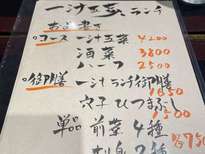 一汁五菜 ランチ
お品書き
コース 一汁五菜 4200
酒菜 3800
ハーフ 2500
御膳 一汁ランチ御膳
1650
穴子ひつまぶし
2500
単品 前菜4種
各750